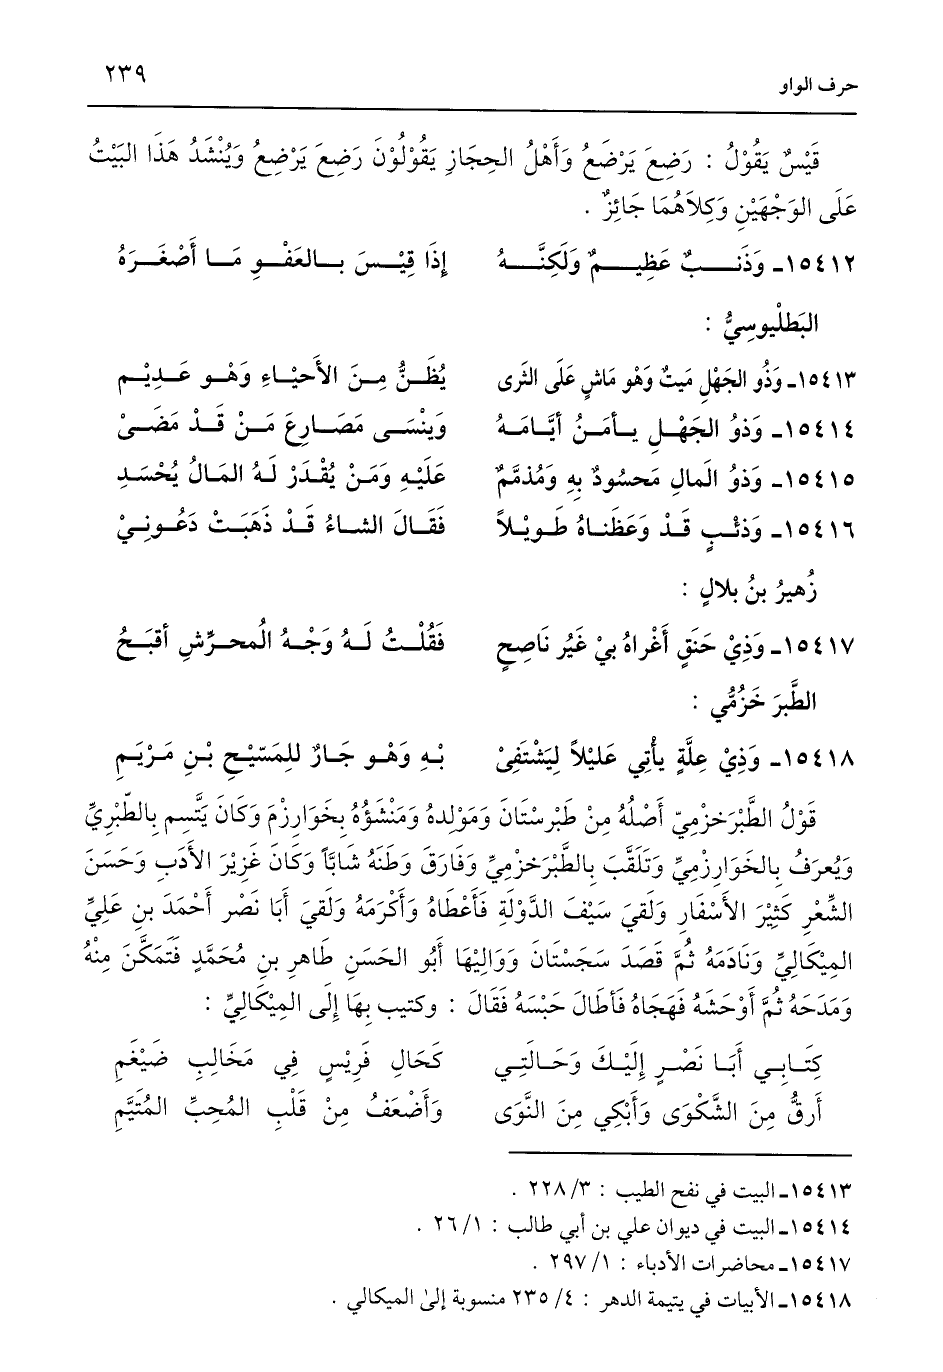 حرف الواو ٢٣٩
قَيْسٌ يَقُوْلُ : رَضِعَ يَرْضَعُ وَأَهْلُ الحِجَازِ يَقُوْلُوْنَ رَضِعَ يَرْضِعُ وَيُنْشَدُ هَذَا البَيْتُ
عَلَى الوَجْهَيْنِ وَكِلاَهُمَا جَائِزٌ .
١٥٤١٢ـ وَذَنــبٌ عَظِيــمٌ وَلَكِنَّــهُ إِذَا قِيْــسَ بــالعَفْــوِ مَــا أَصْغَــرَهُ
البَطلْيوسِيُّ :
١٥٤١٣ـ وَذُو الجَهْلِ مَيتٌ وَهْو مَاشٍ عَلَى الثرى يُظَــنُّ مِــنَ الأَحيْــاءِ وَهْــو عَــدِيْــم
١٥٤١٤ـ وَذوُ الجَهْــلِ يــأمَــنُ أيَّــامَــهُ وَيَنْسَــى مَصَــارِعَ مَــنْ قَــدْ مَضَــىْ
١٥٤١٥ـ وَذوُ المالِ مَحسُودٌ بهِ وَمُذمَّمٌ عَلَيْهِ وَمَنْ يُقْدَرْ لَهُ المَالُ يُحْسَدِ
١٥٤١٦ـ وَذئْــبٍ قَــدْ وَعَظَنــاهُ طَــويْــلاً فَقَالَ الشاءُ قَــدْ ذَهَبَــتْ دَعُــونِــيْ
زُهيرُ بنُ بلالٍ :
١٥٤١٧ـ وَذِيْ حَنَقٍ أَغْراهُ بيْ غَيُر نَاصِحٍ فَقُلْــتُ لَــهُ وَجْــهُ الُمحَرِّشِ أقبَــحُ
الطَّبرَ خَزُمُّي :
١٥٤١٨ـ وَذِيْ عِلَّةٍ يأتِي عَليْلاً لِيَشْتَفِىْ بْهِ وَهْو جَــارٌ للِمَسّيْــحِ بْــنِ مَــرْيَــمِ
قَوْلُ الطَّبْرَخزْمِيّ أَصْلُهُ مِنْ طَبْرسْتَانَ وَمَوْلِدهُ وَمَنْشَؤُهُ بِخَوَارِزْمَ وَكَانَ يَتَّسِم بِالطّبْرِيِّ
وَيُعرَفُ بِالخَوَارِزْمِيِّ وَتَلَقَّبَ بِالطَّبْرَخْزِميِّ وَفَارَقَ وَطَنَهُ شَابَّاً وَكَانَ غَزِيْرَ الأَدَبِ وَحَسَنَ
الشِّعْرِ كَثِيْرَ الأَسْفَارِ وَلَقيَ سَيْفَ الدَّوْلَةِ فَأَعْطَاهُ وَأَكْرَمَهُ وَلَقيَ أَبَا نَصْر أَحْمَدَ بنِ عَلِيِّ
المِيْكَالِيِّ وَنَادَمَهُ ثُمَّ قَصَدَ سَجَسْتَانَ وَوَالِيْهَا أَبُو الحَسَنِ طَاهِرِ بنِ مُحَمَّدٍ فَتَمَكَّنَ مِنْهُ
وَمَدَحَهُ ثُمَّ أَوْحَشَهُ فَهَجَاهُ فَأَطَالَ حَبْسَهُ فَقَالَ : وكتيب بِهَا إِلَى المِيْكَالِيِّ :
كِتَــابِــي أَبَــا نَصْــرٍ إِلَيْــكَ وَحَــالَتِــي كَحَالِ فَرِيْسٍ فِي مَخَالِبِ ضَيْغَمِ
أَرقُّ مِنَ الشَّكْوَى وَأَبْكِي مِنَ النَّوَى وَأَضْعَفُ مِنْ قَلْبِ المُحِبِّ المُتيَّمِ
١٥٤١٣ـ البيت في نفح الطيب : ٣/ ٢٢٨ .
١٥٤١٤ـ البيت في ديوان علي بن أبي طالب : ١/ ٢٦ .
١٥٤١٧ـ محاضرات الأدباء : ١/ ٢٩٧ .
١٥٤١٨ـ الأبيات في يتيمة الدهر : ٤/ ٢٣٥ منسوبة إلىٰ الميكالي .